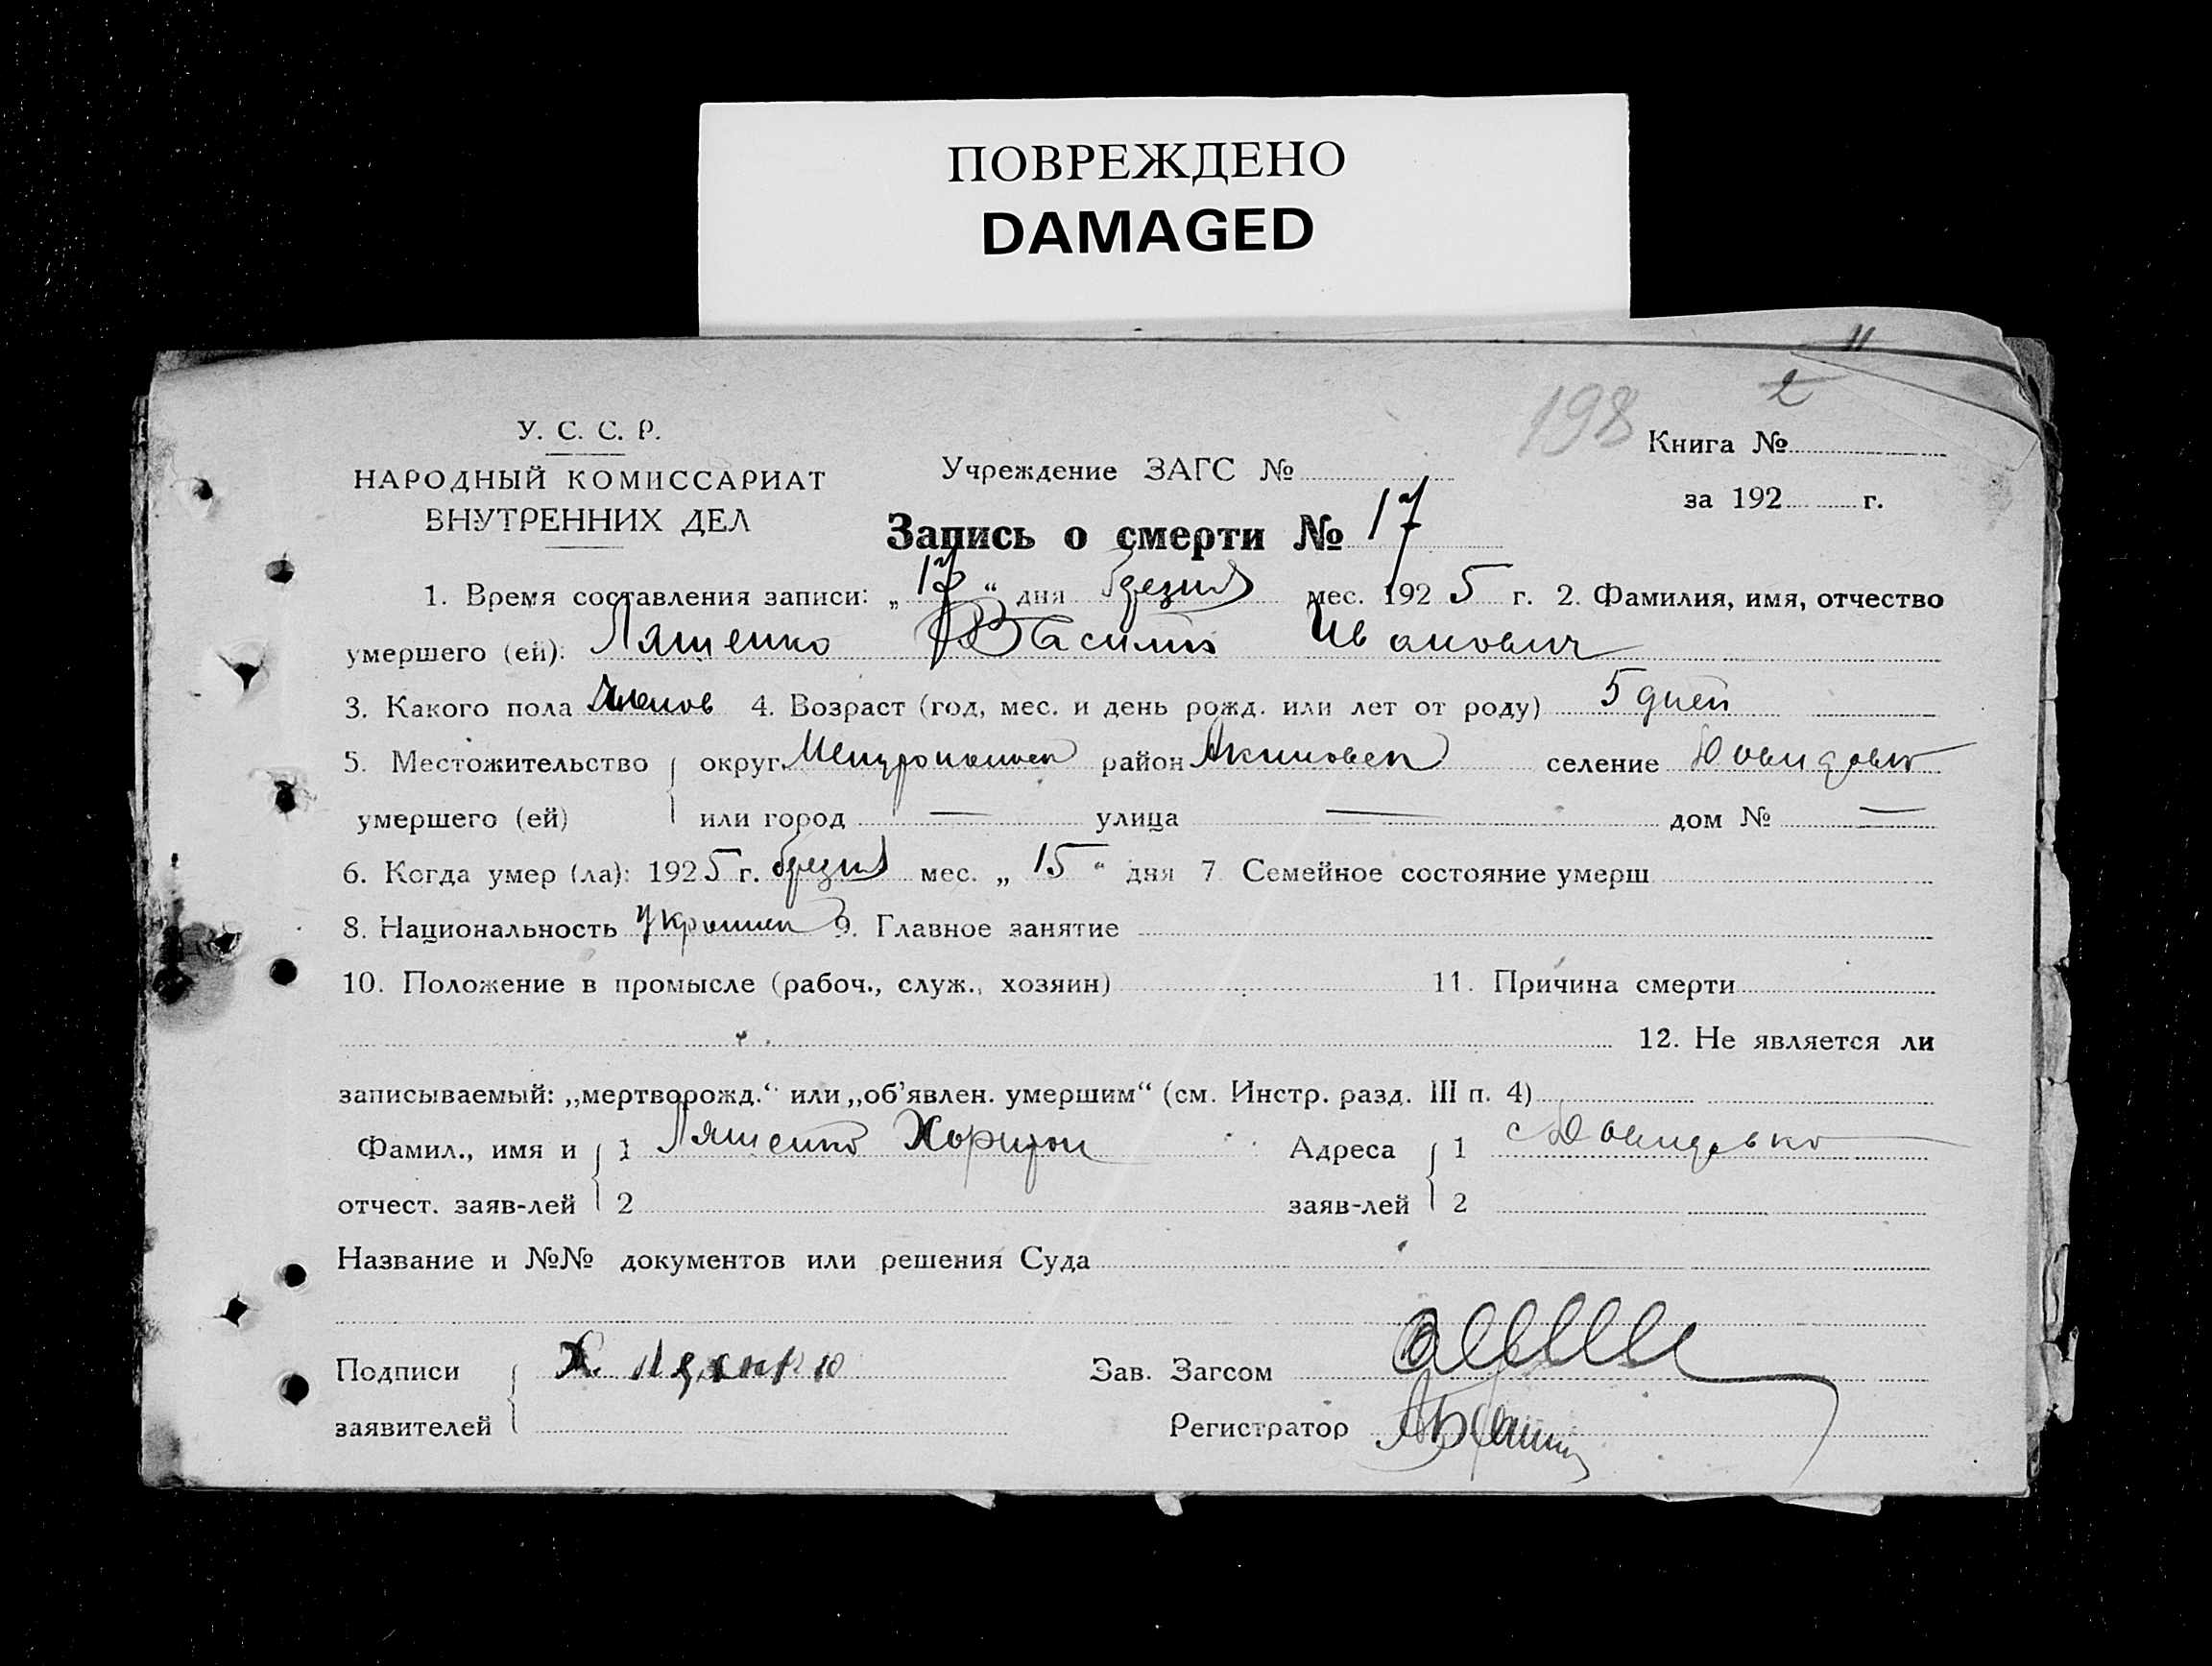 ПОВРЕЖДЕНО
DAMAGED
198
2
У. С. С. Р.
НАРОДНЫЙ КОМИССАРИАТ
ВНУТРЕННИХ ДЕЛ
Учреждение ЗАГС №
Книга №
за 192 г.
Запись о смерти № 17
1. Время составления записи: „17“ дня березня мес. 1925 г. 2. Фамилия, имя, отчество
умершего (ей): Ляшенко Василь Иванович
3. Какого пола 4. Возраст (год, мес. и день рожд. или лет от роду) 5 дней
5. Местожительство округ Мелитопольск район Акимовск селение Давидовка
умершего (ей) или город — улица — дом № —
6. Когда умер (ла): 1925 г. березня мес. „15“ дня 7 Семейное состояние умерш
8. Национальность Украинец 9. Главное занятие
10. Положение в промысле (рабоч., служ., хозяин) 11. Причина смерти
12. Не является ли
записываемый: „мертворожд.“ или „об'явлен. умершим“ (см. Инстр. разд. III п. 4)
Фамил., имя и 1 Ляшенко Харитон Адреса 1 с Давидовка
отчест. заяв-лей 2 заяв-лей 2
Название и №№ документов или решения Суда
Подписи Х. Зав. Загсом
заявителей Регистратор